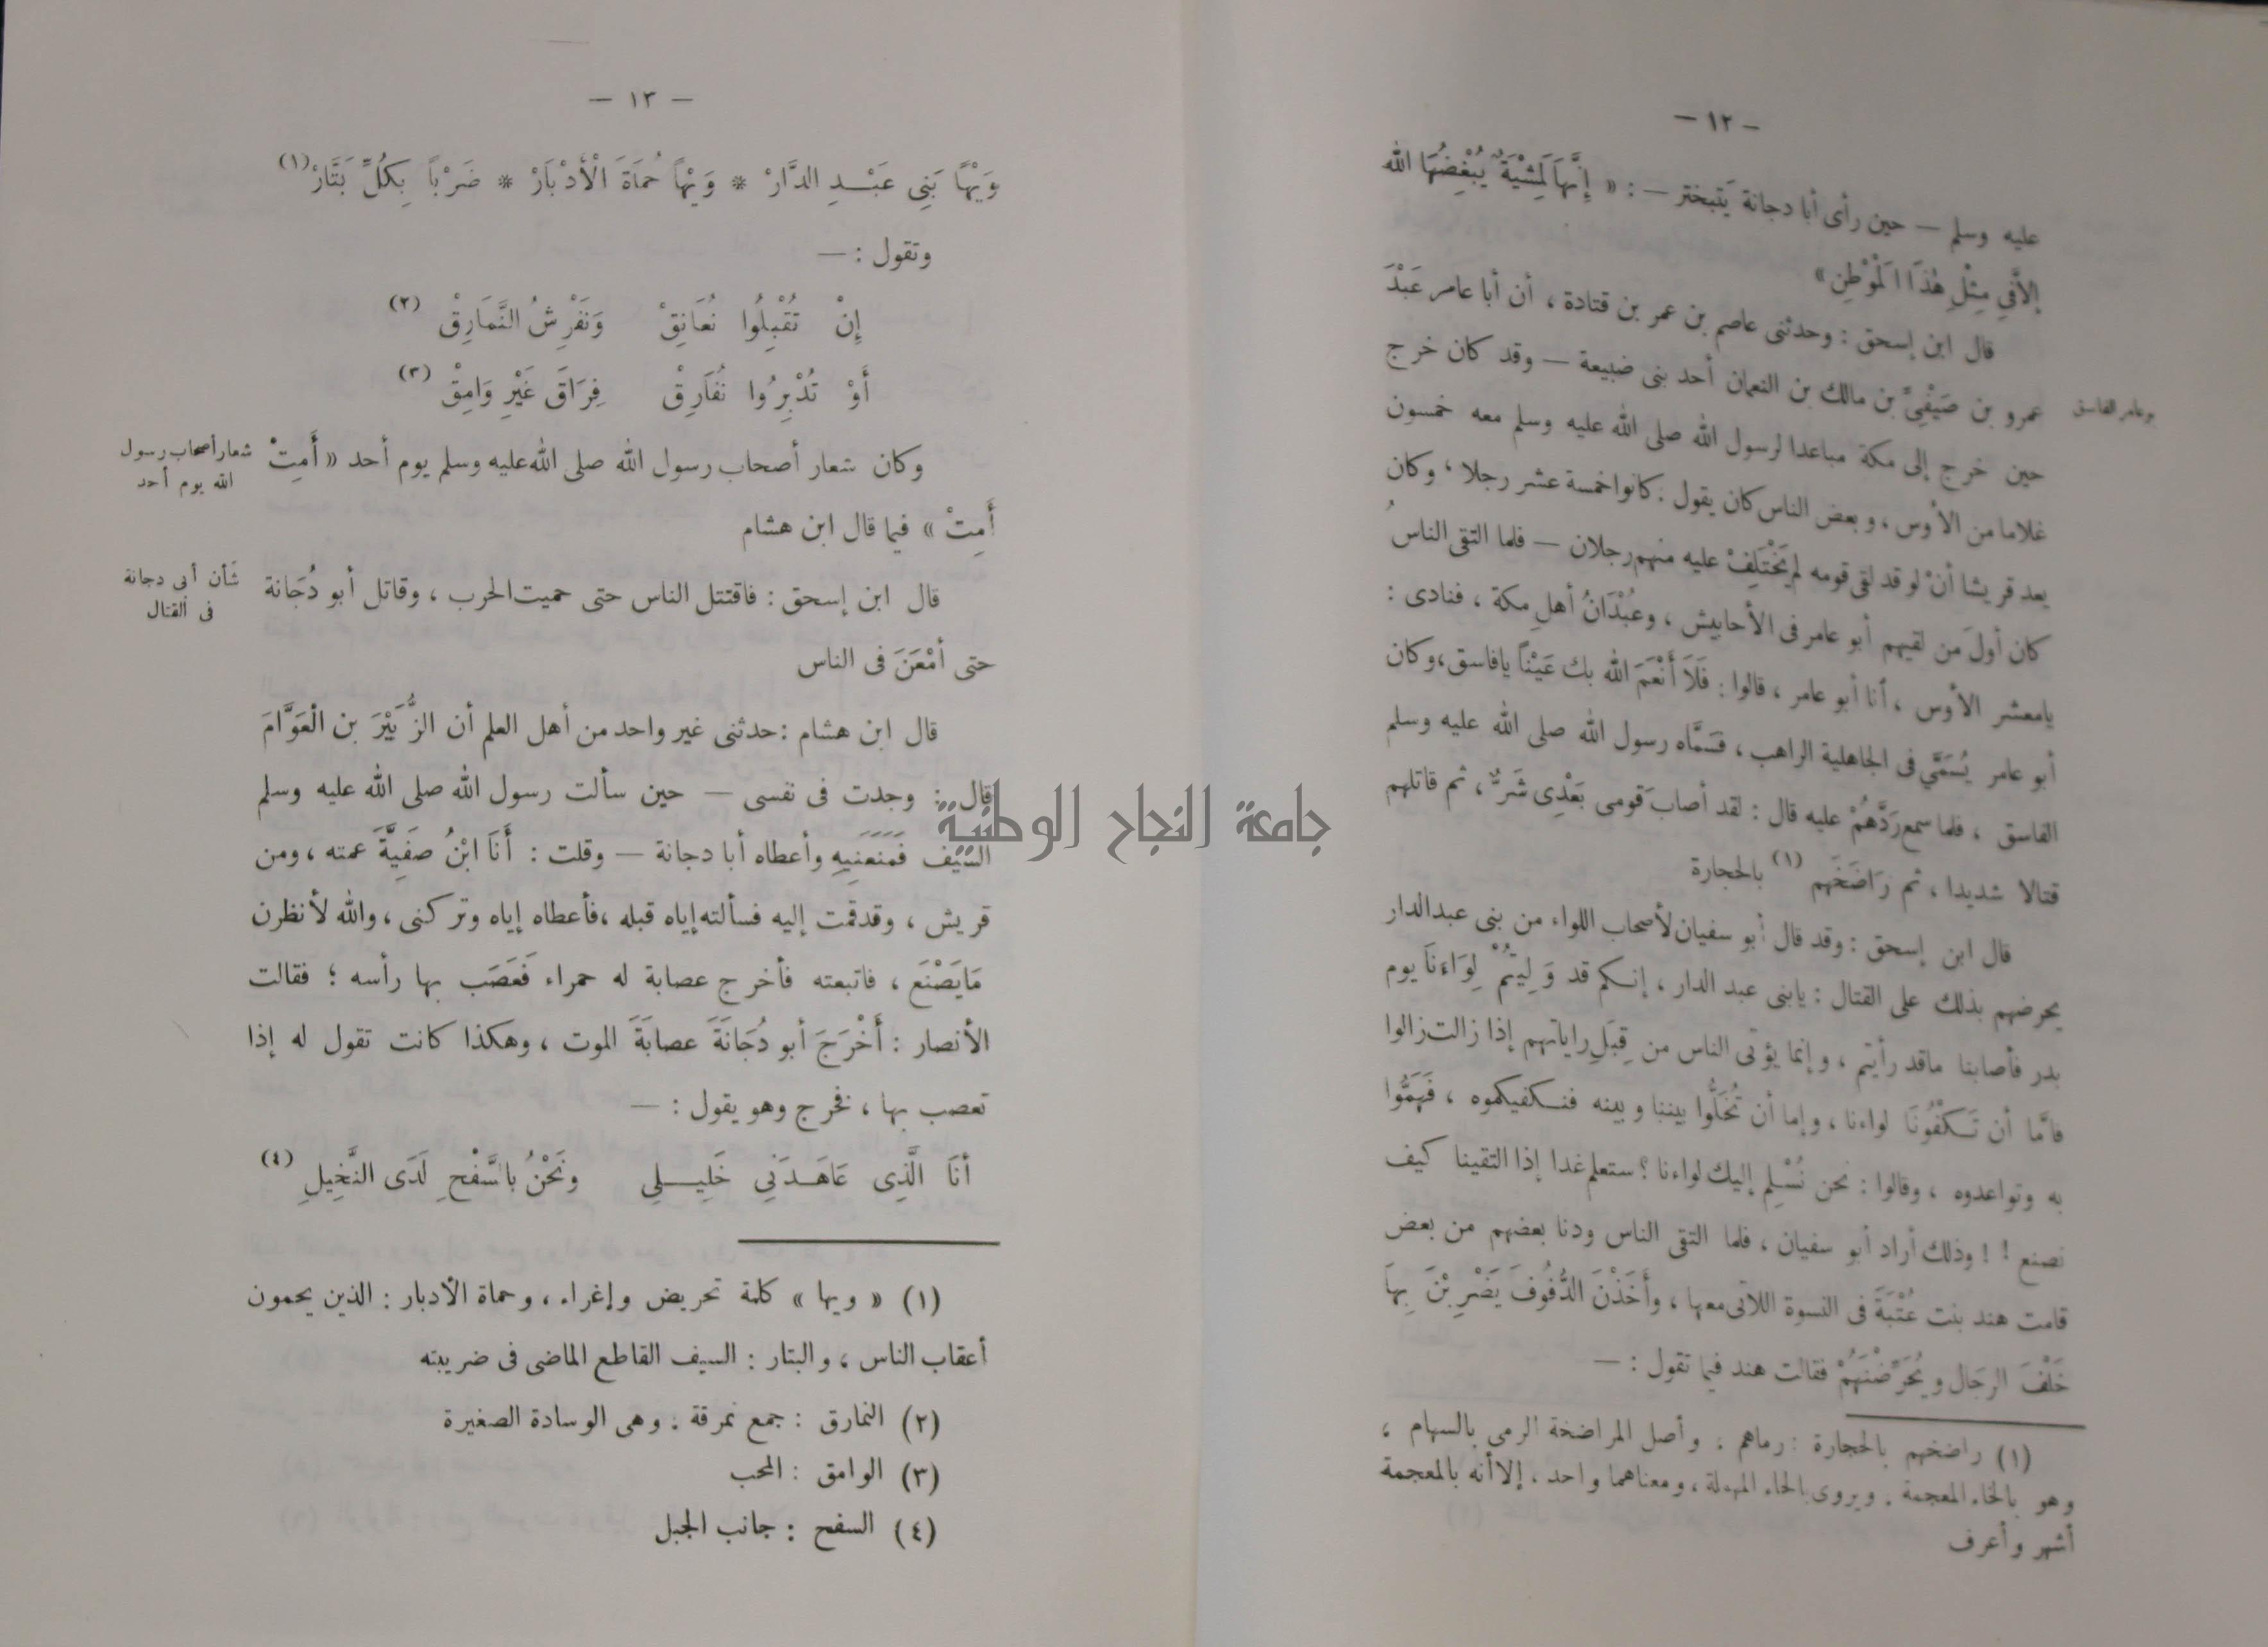 — ١٢ —
عليه وسلم — حين رأى أبا دجانة يَتبختر — : « إِنَّهَا لَمِشْيَةٌ يُبْغِضُهَا اللّٰه
إلاَّ فِي مِثْلِ هٰذَا الْمَوْطِنِ »
قال ابن إسحق : وحدثنى عاصم بن عمر بن قتادة ، أن أبا عامر عَبْدَ
عمرو بن صَيْفِىِّ بن مالك بن النعمان أحد بنى ضبيعة — وقد كان خرج
حين خرج إلى مكة مباعدا لرسول اللّٰه صلى اللّٰه عليه وسلم معه خمسون
غلاما من الأوس ، وبعض الناس كان يقول : كانوا خمسة عشر رجلا ، وكان
يعد قريشا أنْ لو قد لقى قومه لم يَخْتَلِفْ عليه منهم رجلان — فلما التقى الناسُ
كان أولَ من لقيهم أبو عامر فى الأحابيش ، وعُبْدَانُ أهلِ مكة ، فنادى :
يامعشر الأوس ، أنا أبو عامر ، قالوا : فَلَا أَنْعَمَ اللّٰه بك عَيْناً يافاسق ، وكان
أبو عامر يُسَمَّى فى الجاهلية الراهب ، فسَمَّاه رسول اللّٰه صلى اللّٰه عليه وسلم
الفاسق ، فلما سمع رَدَّهُمْ عليه قال : لقد أصابَ قومى بَعْدِى شَرٌّ ، ثم قاتلهم
قتالا شديدا ، ثم رَاضَخَهم (١) بالحجارة
قال ابن إسحق : وقد قال أبو سفيان لأصحاب اللواء من بنى عبد الدار
يحرضهم بذلك على القتال : يابنى عبد الدار ، إنكم قد وَلِيتُمْ لِوَاءَنَا يوم
بدر فأصابنا ماقد رأيتم ، وإنما يؤتى الناس من قِبَلِ راياتهم إذا زالت زالوا
فإمَّا أن تَكْفُونَا لواءنا ، وإما أن تُخَلُّوا بيننا وبينه فنكفيكموه ، فَهَمُّوا
به وتواعدوه ، وقالوا : نحن نُسْلِم إليك لواءنا ؟ ستعلم غدا إذا التقينا كيف
نصنع ! ! وذلك أراد أبو سفيان ، فلما التقى الناس ودنا بعضهم من بعض
قامت هند بنت عُتْبَةَ فى النسوة اللاتى معها ، وأَخَذْنَ الدُّفُوفَ يَضْرِبْنَ بِهَا
خَلْفَ الرجَال ويُحَرِّضْنَهُمْ فقالت هند فيما تقول : —
(١) راضخهم بالحجارة : رماهم . وأصل المراضخة الرمى بالسهام ،
وهو بالخاء المعجمة . ويروى بالحاء المهملة ، ومعناهما واحد . إلا أنه بالمعجمة
أشهر وأعرف
— ١٣ —
وَيْهًا بَنِى عَبْدِ الدَّارْ * وَيْهاً حُمَاةَ الْأَدْبَارْ * ضَرْباً بِكُلِّ بَتَّارْ (١)
وتقول : —
إِنْ تُقْبِلُوا نُعَانِقْ وَنَفْرِشُ النَّمَارِقْ (٢)
أَوْ تُدْبِرُوا نُفَارِقْ فِرَاقَ غَيْرِ وَامِقْ (٣)
وكان شعار أصحاب رسول اللّٰه صلى اللّٰه عليه وسلم يوم أحد « أَمِتْ
أَمِتْ » فيما قال ابن هشام
شعار أصحاب رسول
اللّٰه يوم أحد
قال ابن إسحق : فاقتتل الناس حتى حميت الحرب ، وقاتل أبو دُجَانة
حتى أَمْعَنَ فى الناس
شأن أبى دجانة
فى القتال
قال ابن هشام : حدثنى غير واحد من أهل العلم أن الزُّبَيْرَ بن الْعَوَّامَ
قال : وجدت فى نفسى — حين سألت رسول اللّٰه صلى اللّٰه عليه وسلم
السيف فَمَنَعَنِيهِ وأعطاه أبا دجانة — وقلت : أَنَا ابْنُ صَفِيَّةَ عمته ، ومن
قريش ، وقد قمت إليه فسألته إياه قبله ، فأعطاه إياه وتركنى ، واللّٰه لأنظرن
مَايَصْنَع ، فاتبعته فأخرج عصابة له حمراء فَعَصَب بها رأسه ؛ فقالت
الأنصار : أَخْرَجَ أبو دُجَانَةَ عصابَةَ الموت ، وهكذا كانت تقول له إذا
تعصب بها ، فخرج وهو يقول : —
أنَا الَّذِى عَاهَدَنِى خَلِيلِى وَنَحْنُ بِالسَّفْحِ لَدَى النَّخِيلِ (٤)
(١) « ويها » كلمة تحريض وإغراء ، وحماة الأدبار : الذين يحمون
أعقاب الناس ، والبتار : السيف القاطع الماضى فى ضريبته
(٢) النمارق : جمع نمرقة . وهى الوسادة الصغيرة
(٣) الوامق : المحب
(٤) السفح : جانب الجبل
جامعة النجاح الوطنية